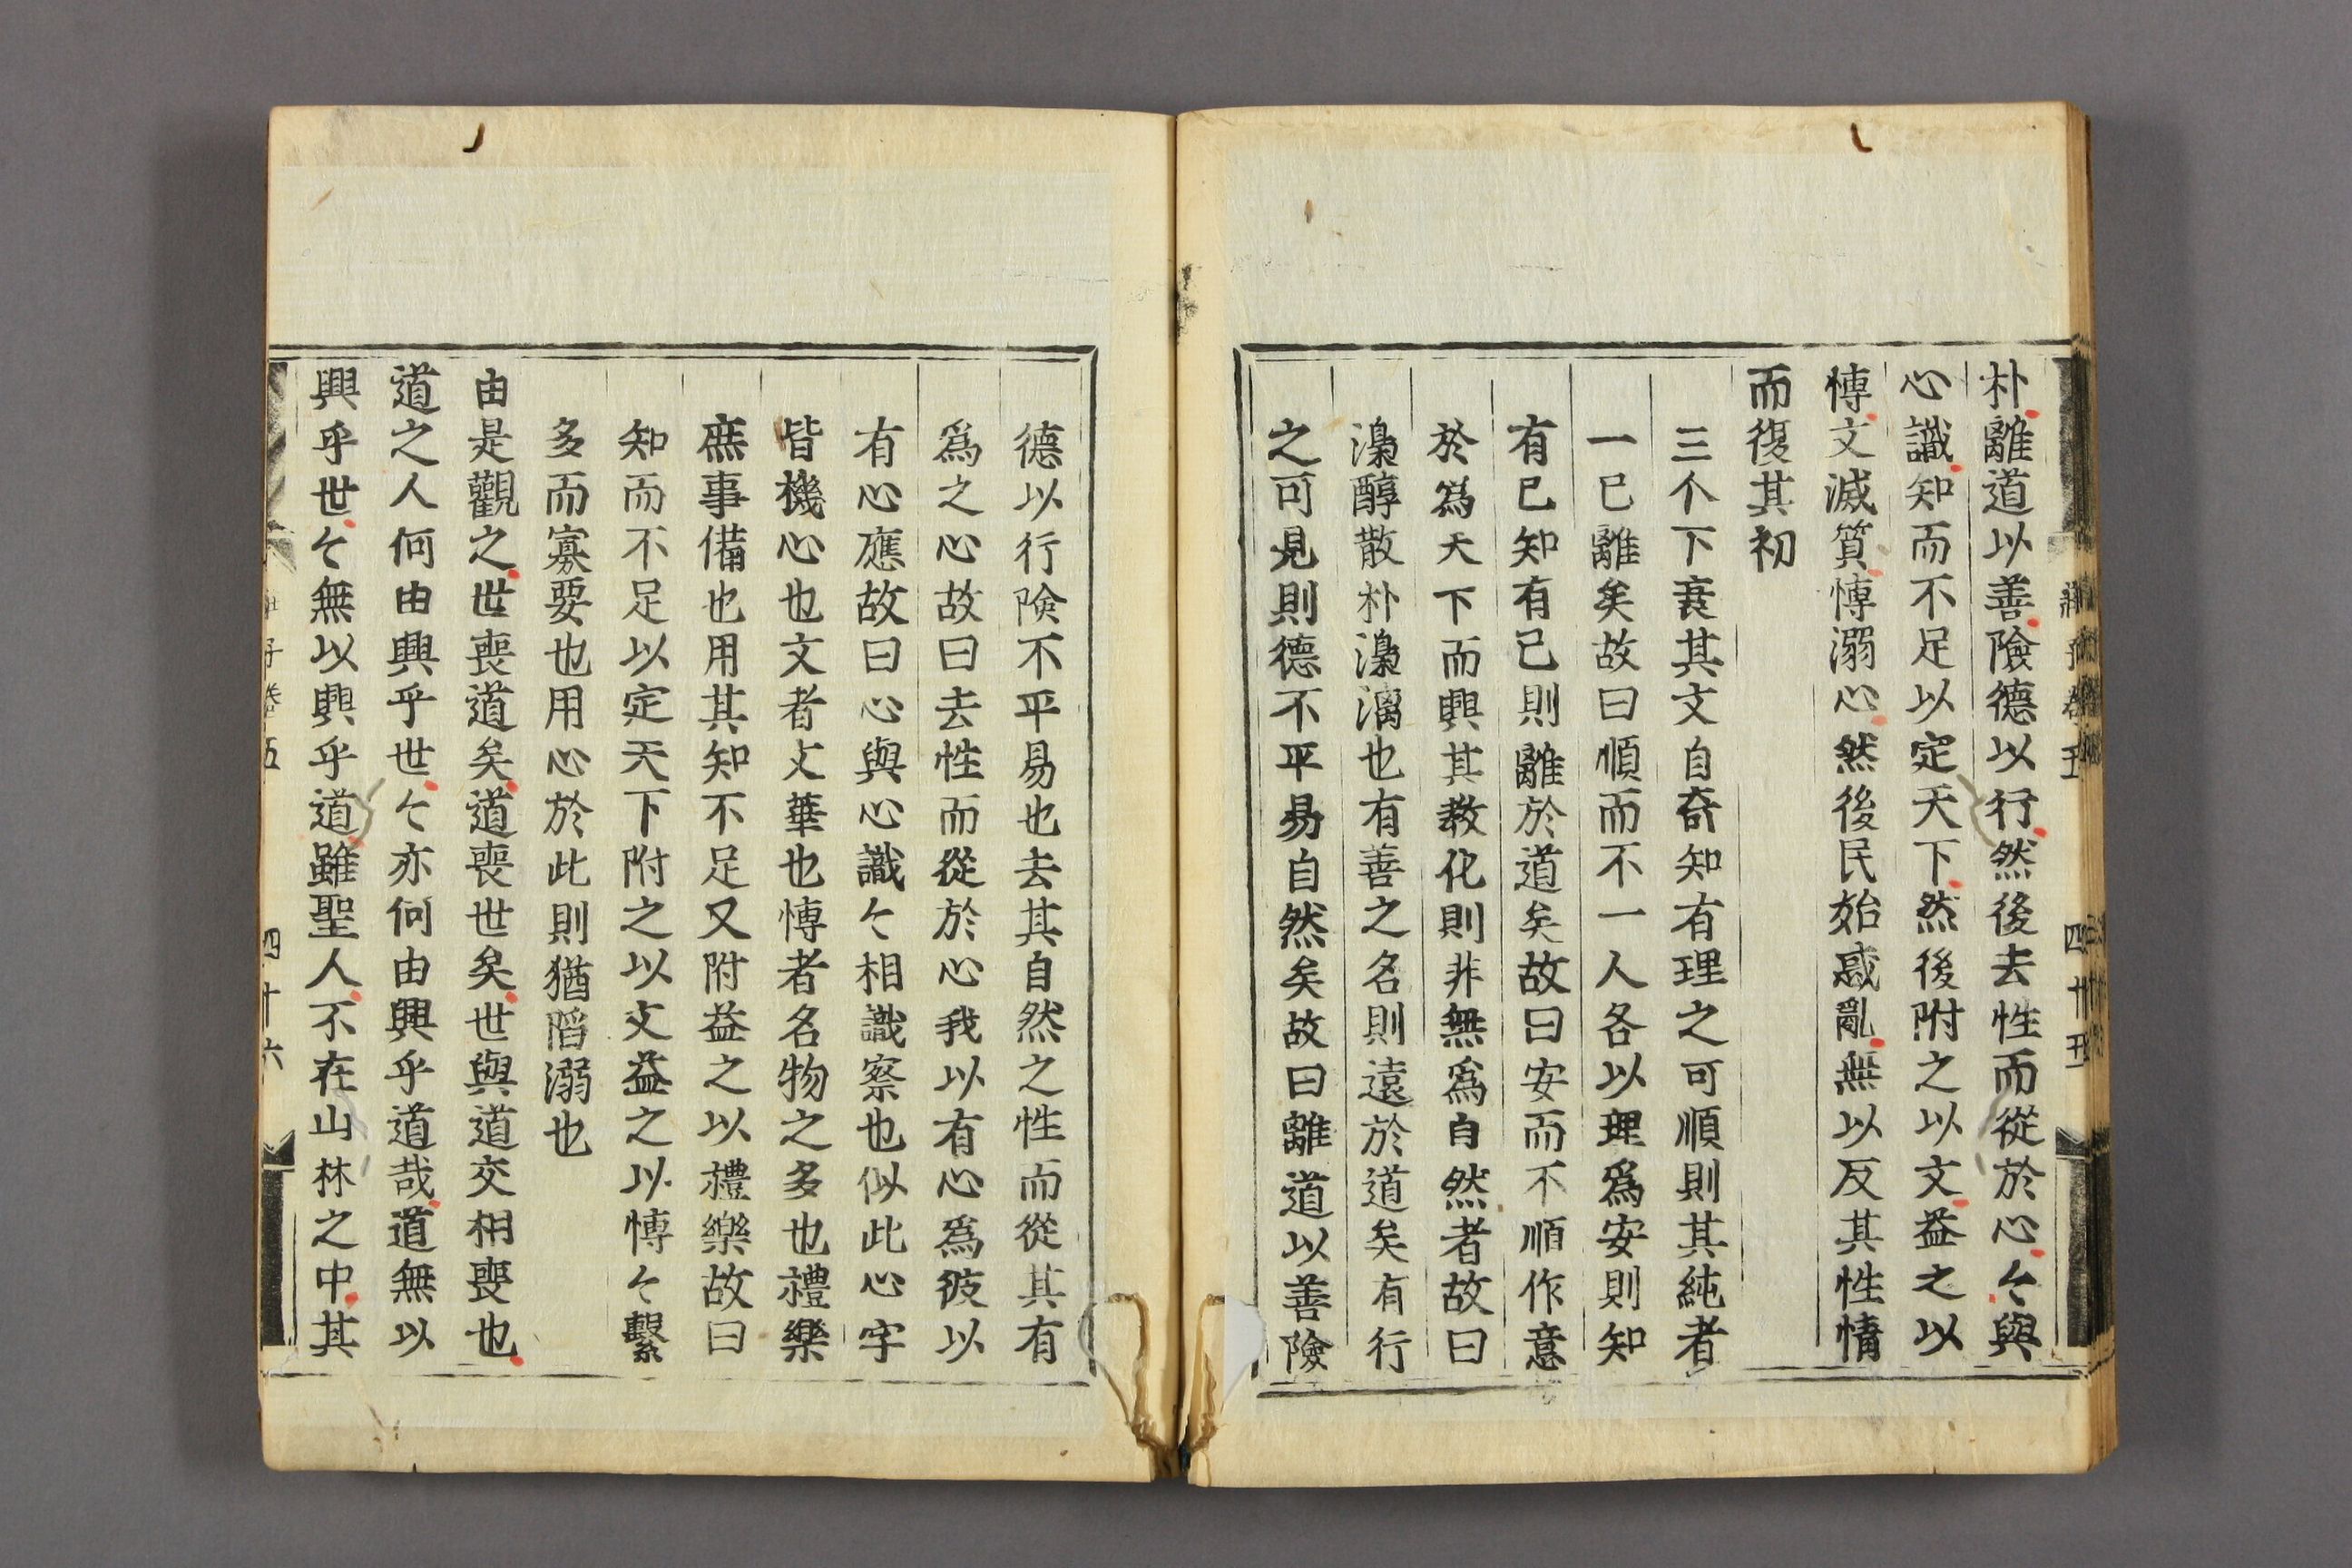 朴離道以善險德以行然後去性而從於心〻與
心識知而不足以定天下然後附之以文益之以
愽文滅質愽溺心然後民始惑亂無以反其性情
而復其初
三个下衰其文自奇知有理之可順則其純者
一已離矣故曰順而不一人各以理爲安則知
有已知有已則離於道矣故曰安而不順作意
於爲天下而興其教化則非無爲自然者故曰
澆醇散朴澆漓也有善之名則遠於道矣有行
之可見則德不平易自然矣故曰離道以善險
德以行險不平易也去其自然之性而從其有
爲之心故曰去性而從於心我以有心爲彼以
有心應故曰心與心識〻相識察也似此心字
皆機心也文者文華也愽者名物之多也禮樂
庶事備也用其知不足又附益之以禮樂故曰
知而不足以定天下附之以文益之以愽〻繫
多而寡要也用心於此則猶陷溺也
由是觀之世喪道矣道喪世矣世與道交相喪也
道之人何由興乎世〻亦何由興乎道哉道無以
興乎世〻無以興乎道雖聖人不在山林之中其
子卷五
四十六